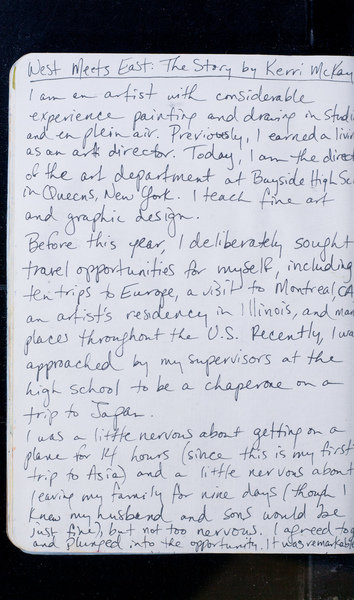 West Meets East: The Story by Kerri McKay
I am an artist with considerable
experience painting and drawing in studi
and en plein air. Previously, I earned a livi
as an art director. Today, I am the direct
of the art department at Bayside High Sc
in Queens, New York. I teach fine art
and graphic design.
Before this year, I deliberately sought
travel opportunities for myself, including
ten trips to Europe, a visit to Montreal, CA
an artist's residency in Illinois, and man
places throughout the U.S. Recently, I wa
approached by my supervisors at the
high school to be a chaperone on a
trip to Japan.
I was a little nervous about getting on a
plane for 14 hours (since this is my first
trip to Asia) and a little nervous about
leaving my family for nine days (though I
knew my husband and sons would be
just fine), but not too nervous. I agreed to
and plunged into the opportunity. It was remarkable